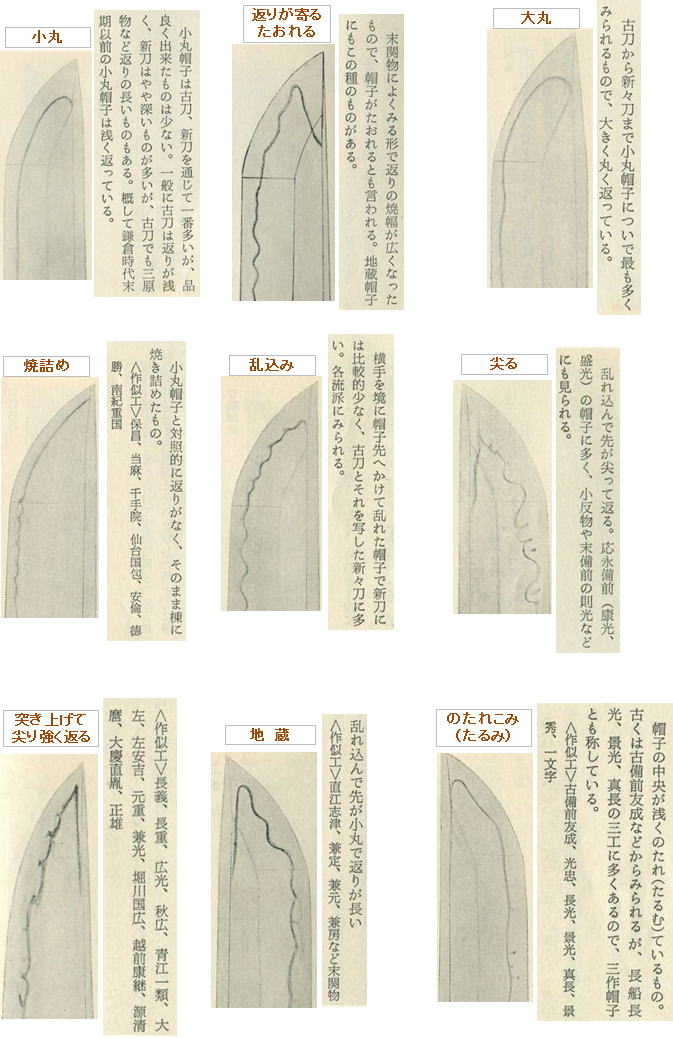 小丸
小丸帽子は古刀、新刀を通じて一番多いが、品
良く出来たものは少ない。一般に古刀は返りが浅
く、新刀はやや深いものが多いが、古刀でも三原
物など返りの長いものもある。概して鎌倉時代末
期以前の小丸帽子は浅く返っている。
返りが寄る
たおれる
末関物によくみる形で返りの焼幅が広くなった
もので、帽子がたおれるとも言われる。地蔵帽子
にもこの種のものがある。
大丸
古刀から新々刀まで小丸帽子についで最も多く
みられるもので、大きく丸く返っている。
焼詰め
小丸帽子と対照的に返りがなく、そのまま棟に
焼き詰めたもの。
〈作似工〉保昌、当麻、千手院、仙台国包、安倫、徳
勝、南紀重国
乱込み
横手を境に帽子先へかけて乱れた帽子で新刀に
は比較的少なく、古刀とそれを写した新々刀に多
い。各流派にみられる。
尖る
乱れ込んで先が尖って返る。応永備前（康光、
盛光）の帽子に多く、小反物や末備前の則光など
にも見られる。
突き上げて
尖り強く返る
〈作似工〉長義、長重、広光、秋広、青江一類、大
左、左安吉、元重、兼光、堀川国広、越前康継、源清
麿、大慶直胤、正雄
地蔵
乱れ込んで先が小丸で返りが長い
〈作似工〉直江志津、兼定、兼元、兼房など末関物
のたれこみ
（たるみ）
帽子の中央が浅くのたれ（たるむ）ているもの。
古くは古備前友成などからみられるが、長船長
光、景光、真長の三工に多くあるので、三作帽子
とも称している。
〈作似工〉古備前友成、光忠、長光、景光、真長、景
秀、一文字